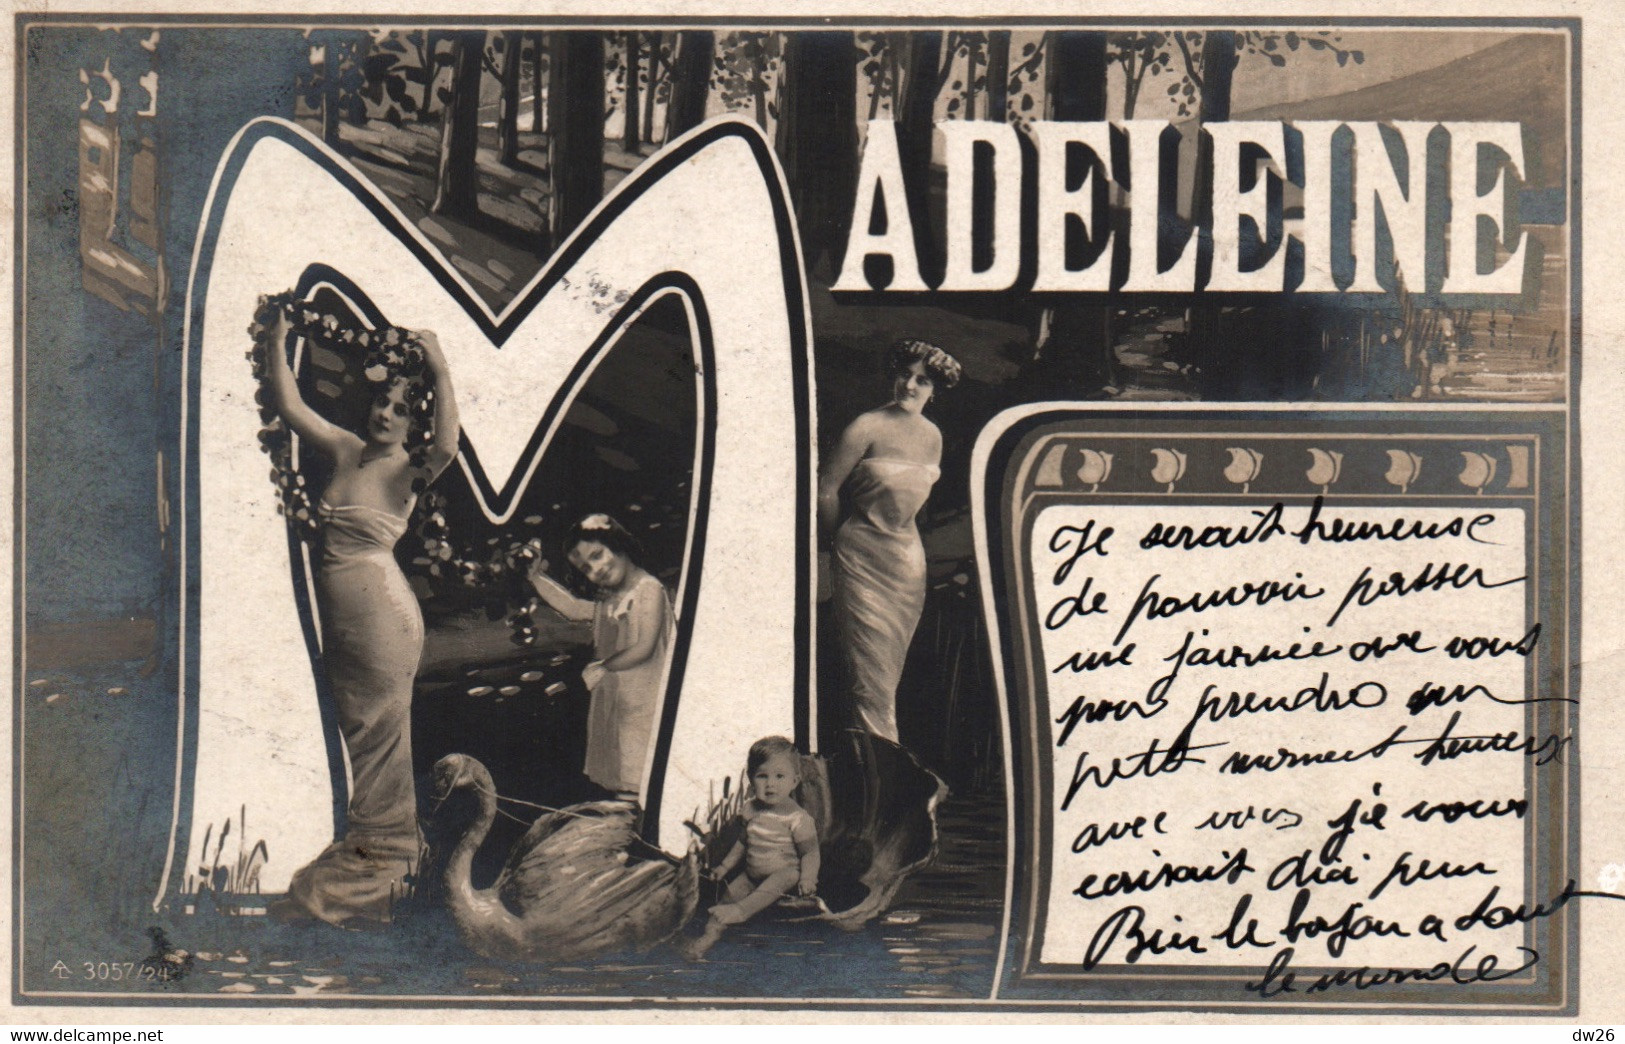 MADELEINE
Je serait heureuse
de pouvoir passer
une journée ave vous
pour prendre un
petit moment heureux
avec vous je vous
ecrirait dici peu
Bien le bonjour a tout
le monde
AL 3057/24
dw26